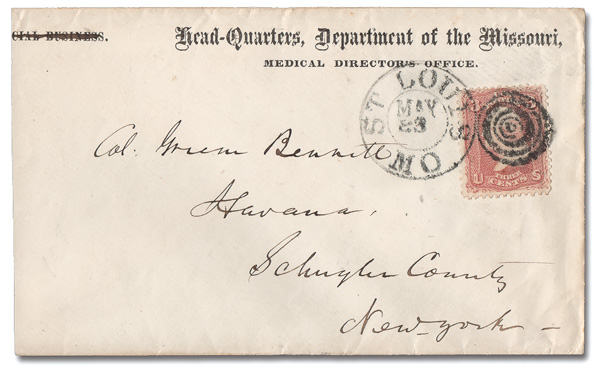 CIAL BUSINESS.
Head-Quarters, Department of the Missouri,
MEDICAL DIRECTOR'S OFFICE.
ST LOUIS MO
MAY
23
U THREE CENTS S
Col. Green Bennett
Havana,
Schuyler County
New-york –